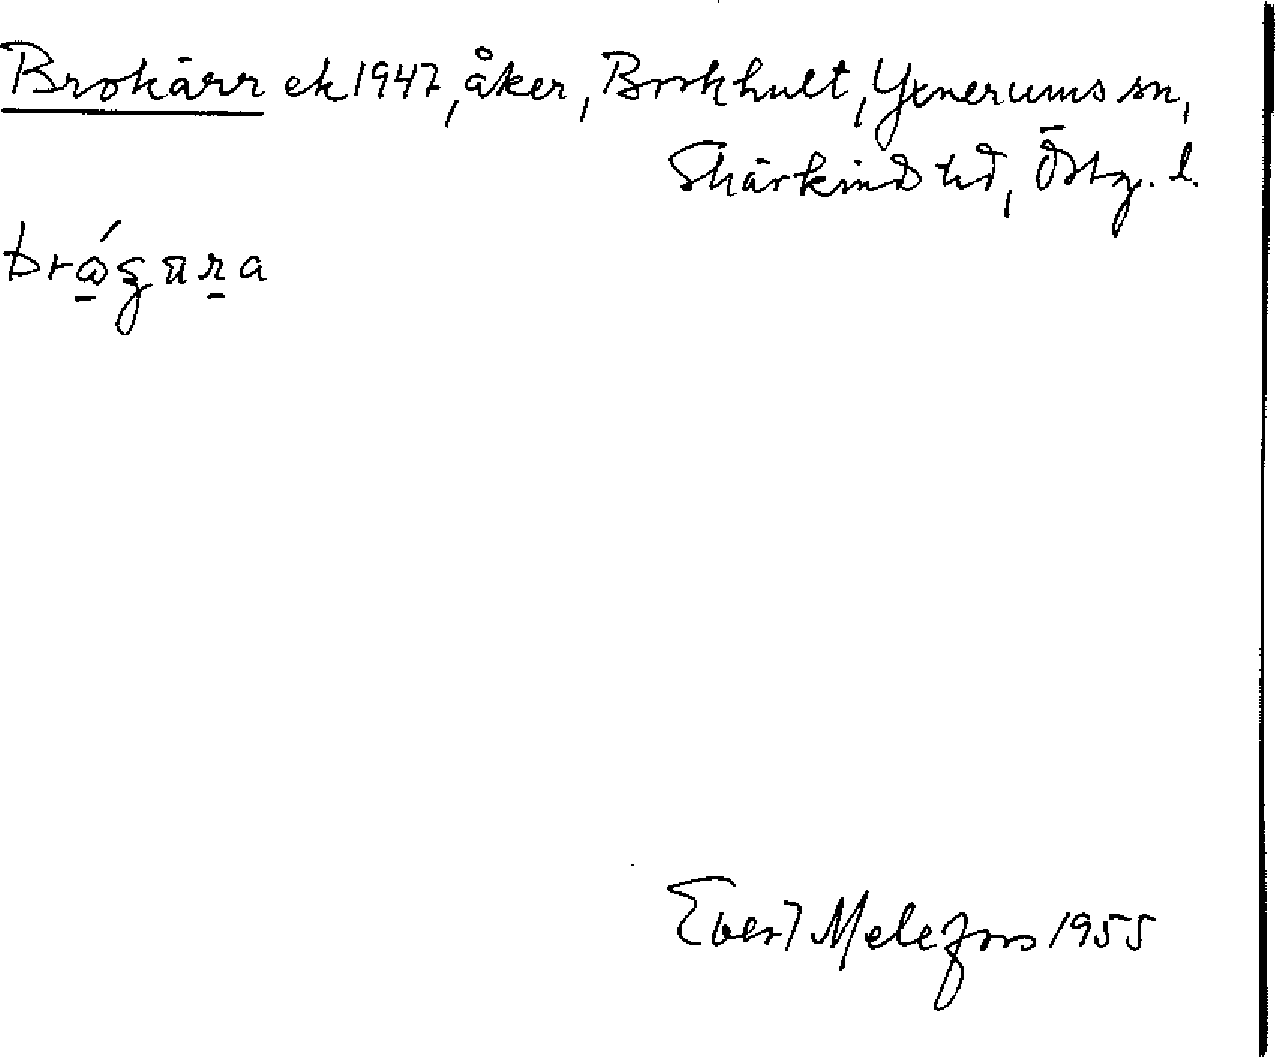 Brokärr ek 1947, åker, Borkhult, Yxnerums sn,
Skärkind hd, Östg. l.
Evert Melefors 1955